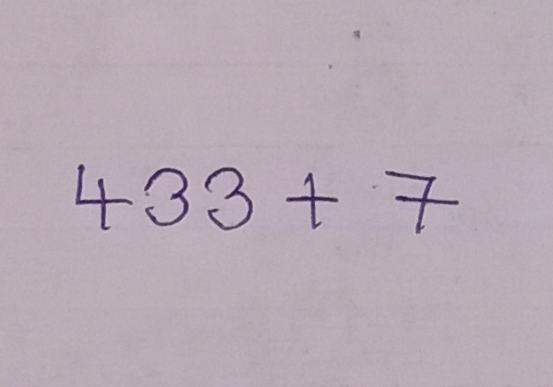 433 + 7